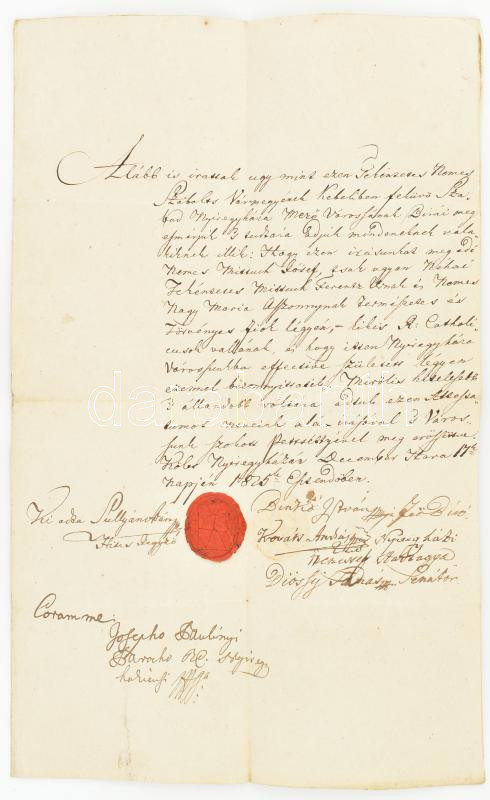 Alább is irattak ugy mint ezen Tekéntetes Nemes
Szabolts Vármegyének Kebelében fekvő Sza-
bad Nyiregyháza Mező Várossának Birái meg
esmérjük 's tudtára adjuk mindeneknek vala-
kiknek illik: Hogy ezen irásunkat meg adó
Nemes Mittuch Jósef, tsak ugyan Néhai
Tekéntetes Mittuch Ferentz Urnak és Nemes
Nagy Maria Aszszonynak természetes és
Törvényes fiok légyen, – R: Catholi-
cusok vallásának, és hogy itten Nyiregyháza
Városunkba effective született légyen
ezennel bizonyittatik. Mellynek hitelesebb
's állandóbb voltára adtuk ezen Attesta-
tumot nevünk alá-irásával 's Város-
sunk szokott Petsétjével meg erősittve
Költ Nyiregyházán December Hava 17ik
napján 1825ik Esztendőben.
Ki adta
Benkő István mp Fő Biró.
Kováts András Nyiregyházi
Senátor
Coram me:
Josepho Paulinyi
Parocho RC. Nyiregy-
háziensi